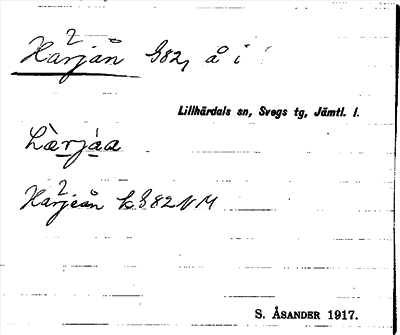 Härjån G82, å i
Lillhärdals sn, Svegs tg, Jämtl. l.
hàrjáa
Härjeån k G82NM
S. ÅSANDER 1917.